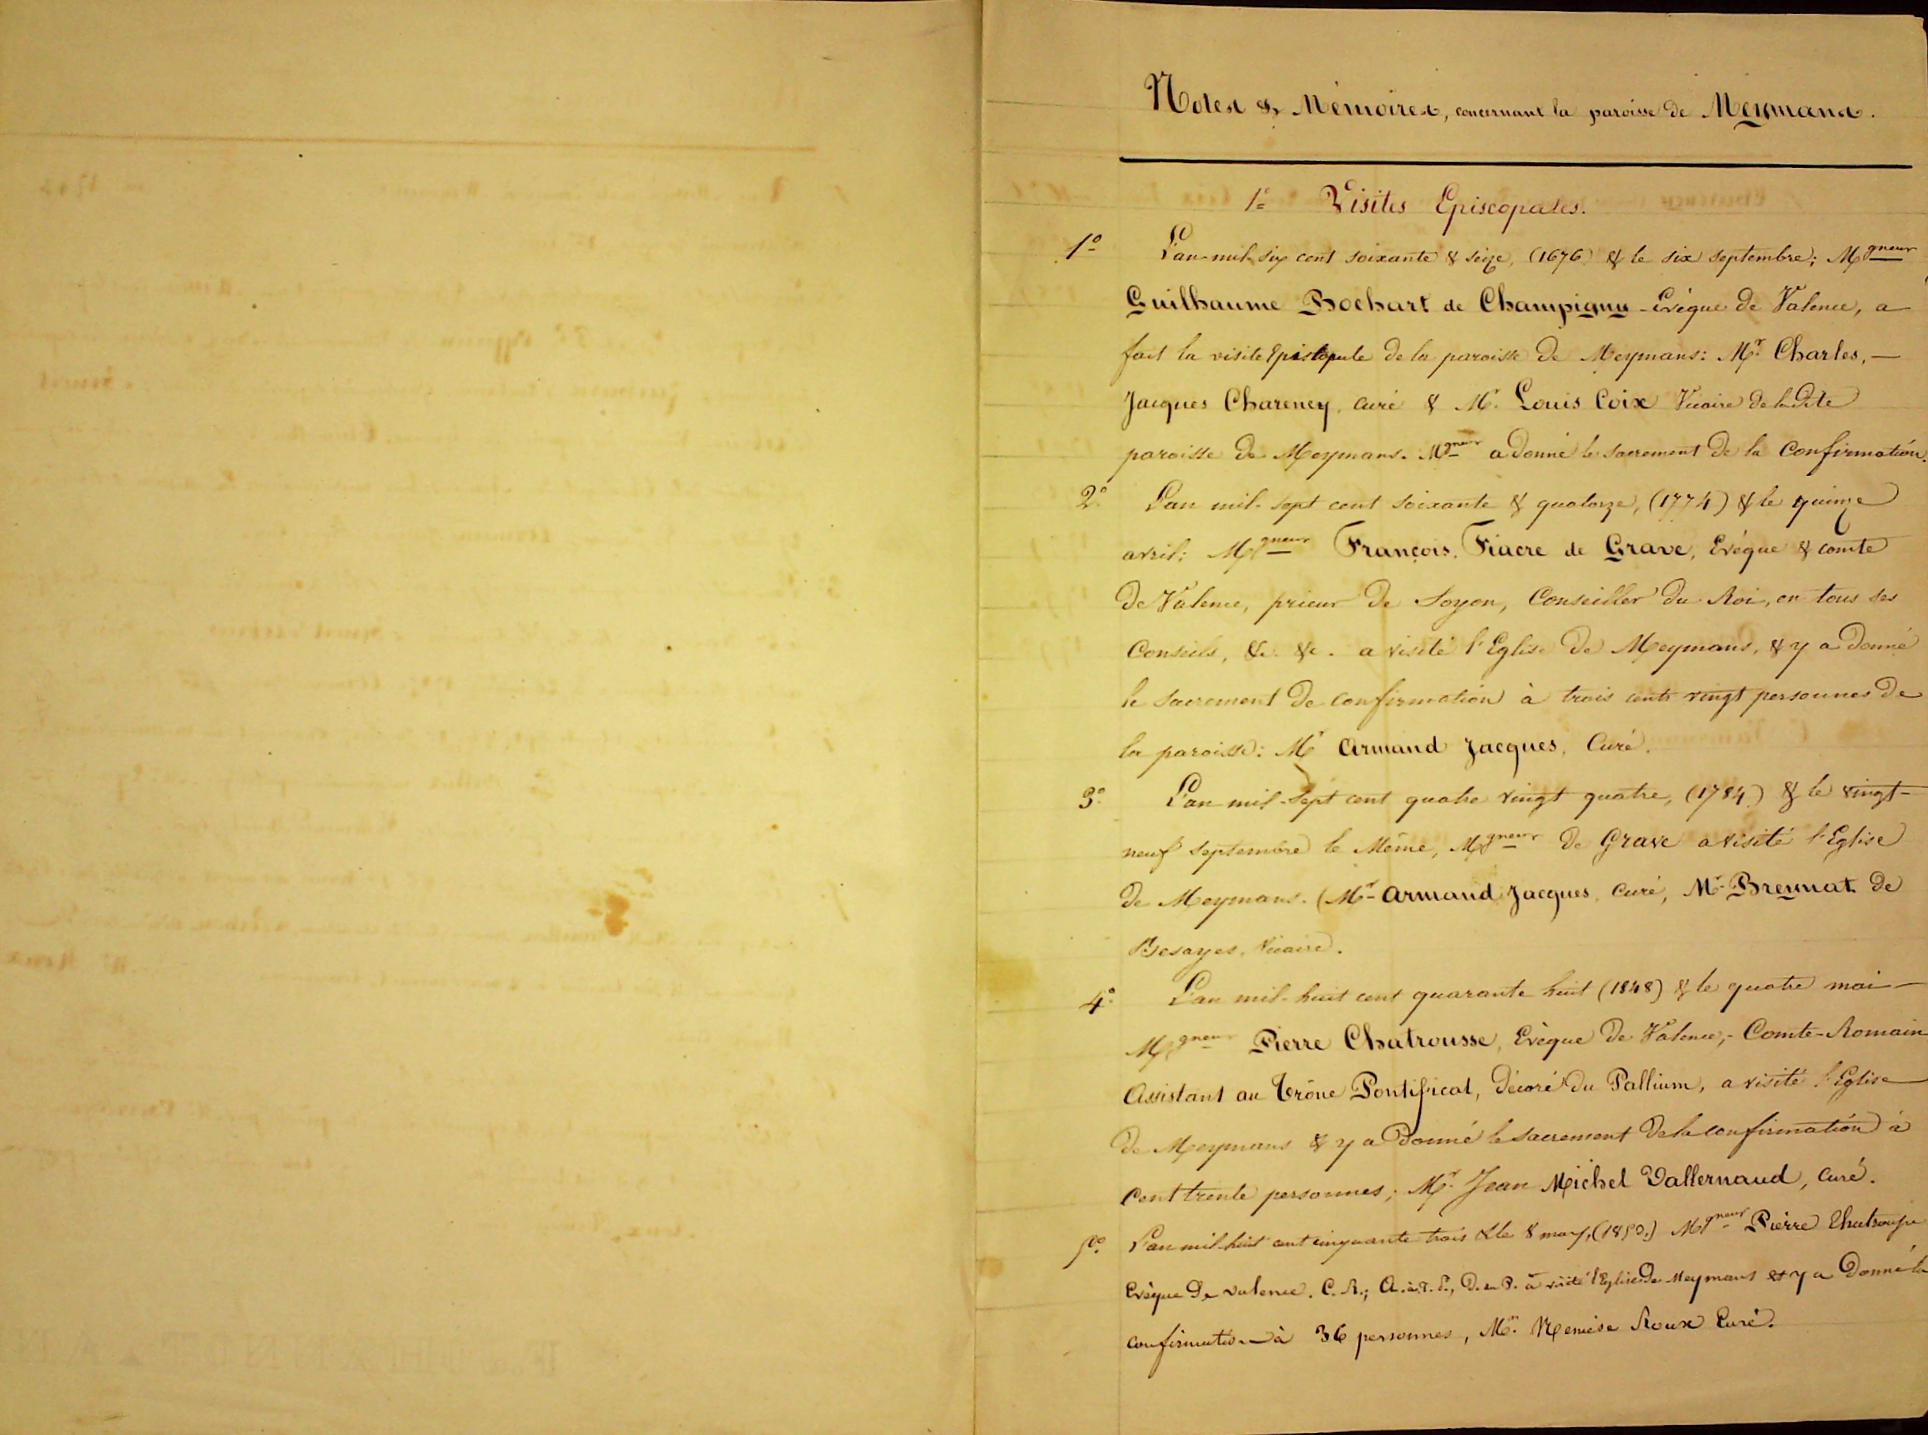 Notes & Mémoires, concernant la paroisse de Meymans.
1° Visites Episcopales.
1° L'an mil six cent soixante & seize, (1676) & le six septembre; Mgneur
Guilhaume Bochart de Champigny - Evêque de Valence, a
fait la visite Episcopale de la paroisse de Meymans: Mr Charles, —
Jacques Charency, curé & Mr. Louis Coix Vicaire de ladite
paroisse de Meymans. Mgneur a donné le sacrement de la Confirmation.
2° L'an mil-sept cent soixante & quatorze, (1774) & le quinze
avril; Mgneur François, Fiacre de Grave, Evêque & comte
de Valence, prieur de Soyon, Conseiller du Roi, en tous ses
Conseils, &c. &c. a visité l'Eglise de Meymans, & y a donné
le sacrement de confirmation à trois cents vingt personnes de
la paroisse: Mr Armand Jacques, Curé.
3° L'an mil-sept cent quatre vingt quatre, (1784) & le vingt-
neuf septembre le Même, Mgneur de Grave a visité l'Eglise
de Meymans. (Mr Armand Jacques, curé, Mr Breynat de
Besayes, Vicaire.
4° L'an mil-huit cent quarante huit (1848) & le quatre mai —
Mgneur Pierre Chatrousse, Evêque de Valence, - Comte-Romain
Assistant au Trône Pontifical, Décoré du Pallium, a visité l'Eglise
de Meymans & y a donné le sacrement de la confirmation à
cent trente personnes; Mr. Jean Michel Vallernaud, curé.
5° L'an mil-huit cent cinquante trois & le 8 may, Mgneur Pierre
Evêque de valence. C. R.; A. a. T. P., D. du P. a visité l'Eglise de Meymans et y a donné la
confirmation à 36 personnes, Mr. Roux Curé.